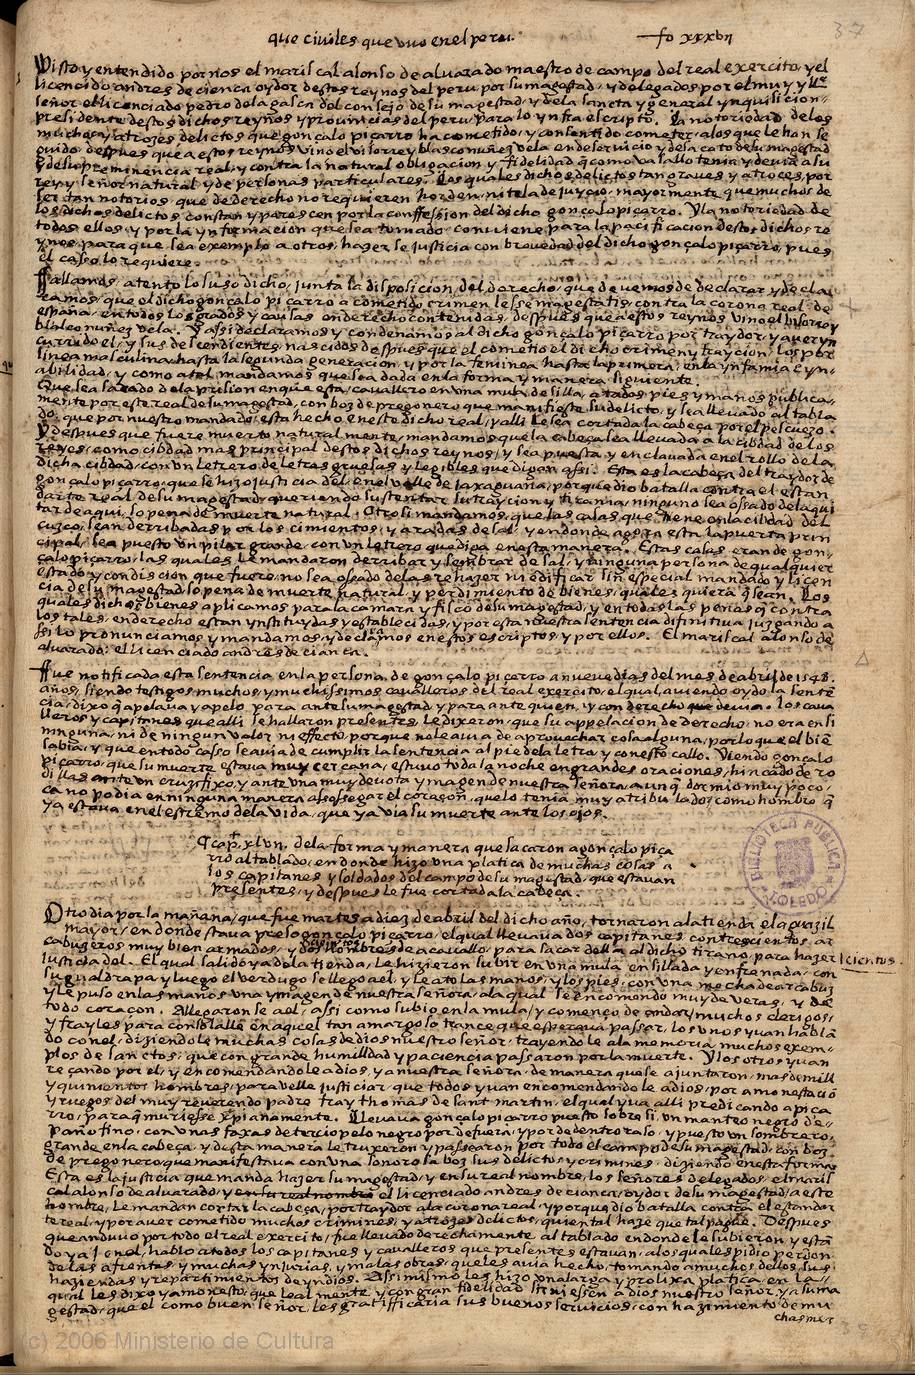 que ciuiles que vuo en el peru. fo xxxvii
37
Visto y entendido por nos el mariscal alonso de aluarado maestro de campo del real exercito, y el
licenciado andres de cianca oydor destos reynos del peru por su magestad, y delegados por el muy yll.e
señor el licenciado pedro dela gasca del consejo de su magestad, y dela sancta y general ynquisicion,
presidente destos dichos reynos y prouincias del peru, para lo ynfra escripto. La notoriedad delos
muchos y atrozes delictos que gonçalo piçarro ha cometido, y consentido cometer a los que le han se
guido, despues que a estos reynos vino el visorrey blasco nuñez vela en deseruicio y desacato de su magestad
y de su preminencia real, y contra la natural obligacion y fidelidad q̄ como vasallo tenia y deuia a su
rey y señor natural y de personas particulares. Los quales dichos delictos tan graues y atroces, por
ser tan notorios, que de derecho no requieren horden, ni tela de juycio, mayormente que muchos de
los dichos delictos constan y parescen por la conffession del dicho gonçalo piçarro. Y la notoriedad de
todos ellos, y por la ynformacion que sea tomado: conuiene para la pacificacion destos dichos re
ynos, para que sea exemplo a otros, hazer se justicia con breuedad del dicho gonçalo piçarro, pues
el casso lo requiere.
Fallamos, atento lo suso dicho, junta la disposicion del derecho, que deuemos de declarar y decla
ramos, que el dicho gonçalo piçarro a cometido crimen lesse magestatis, contra la corona real de
españa, en todos los grados y causas en derecho contenidas, despues que a estos reynos vino el visorrey
blasco nuñez vela. Y assi declaramos y condenamos al dicho gonçalo piçarro por traydor, y auer yn
currido el, y sus descendientes, nascidos despues que el cometio el dicho crimen y traycion, los por
linea masculina, hasta la segunda generacion, y por la feminea hasta la primera, en la ynfamia e yn-
abilidad, y como a tal mandamos que sea dada en la forma y manera siguiente.
Que sea sacado de la prision en que esta, cauallero en una mula de silla, atados pies y manos publica-
mente por este real de su magestad, con boz de pregonero que manifieste su delicto, y sea lleuado al tabla
do, que por nuestro mandado esta hecho en este dicho real, y alli le sea cortada la cabeça por el pescueço.
Y despues que fuere muerto naturalmente, mandamos que la cabeça sea lleuada a la cibdad de los
reyes, como cibdad mas principal destos dichos reynos, y sea puesta y enclauada en el rollo de la
dicha cibdad, con un letrero de letras gruesas y legibles que digan assi. Esta es la cabeça del traydor de
gonçalo piçarro, que se hizo justicia del, en el valle de jaxaguana, por que dio batalla contra el estan
darte real de su magestad, queriendo sustentar su traycion y tirania, ninguno sea osado de la qui
tar de aqui, so pena de muerte natural. Otrosi mandamos, que las casas, que tiene en la cibdad del
cuzco, sean derribadas por los cimientos, y aradas de sal, y en donde agora esta la puerta prin
cipal, sea puesto un pilar grande, con un letrero que diga en esta manera. Estas casas eran de gon-
çalo piçarro, las quales le mandaron derribar y sembrar de sal, y ninguna persona de qualquier
estado y condicion que fuere, no sea osado de las rehazer ni edificar sin especial mandado y licen
cia de su magestad, so pena de muerte natural, y perdimiento de bienes, quales quiera q̄ sean. Los
quales dichos bienes aplicamos para la camara y fisco de su magestad, y en todas las penas q̄ contra
los tales, en derecho estan ynstituydas y establecidas, y por esta nuestra sentencia difinitiua juzgando a
ssi lo pronunciamos y mandamos, y declaramos en estos escriptos, y por ellos. El mariscal alonso de
aluarado: el licenciado andres de cianca.
Fue notificada esta sentencia en la persona de gonçalo piçarro a nueue dias del mes de abril de 1548.
años, siendo testigos muchos y muchissimos caualleros del real exercito, el qual auiendo oydo la sentē
cia, dixo q̄ apelaua y apelo para ante su magestad, y para ante quien, y con derecho que deuia. Los caua
lleros y capitanes que alli se hallaron presentes, le dixeron, que su appelacion de derecho, no era en si
ninguna, ni de ningun valor ni effecto, porque no le auia de aprouechar cosa alguna, por lo que el biē
sabia, y que en todo casso se auia de cumplir la sentencia al pie de la letra, y con esto callo. Viendo gonçalo
piçarro, que su muerte estaua muy cercana, estuuo toda la noche en grandes oraciones, hincado de ro
dillas ante un crucifixo, y ante una muy deuota ymagen de nuestra señora, aunq̄ dormio muy poco,
ca no podia en ninguna manera assossegar el coraçon, que lo tenia muy atribulado, como hombre q̄
ya estaua en el estremo de la vida, que ya via su muerte ante los ojos.
Cap. xlvii. dela forma y manera que sacaron a gonçalo piça
rro al tablado, en donde hizo una platica de muchas cosas a
los capitanes y soldados del campo de su magestad, que estauan
presentes, y despues le fue cortada la cabeça.
BIBLIOTECA PUBLICA
TOLEDO
Otro dia por la mañana, que fue martes a diez de abril del dicho año, tornaron a la tienda el alguazil
mayor, en donde estaua preso gonçalo piçarro, el qual lleuaua dos capitanes con trezientos ar
cabuzeros muy bien armados, y dozientos hombres de a cauallo, para sacar della al dicho tirano, para hazer
justicia del. El qual salido ya de la tienda, le hizieron subir en una mula ensillada y enfrenada, con
cientos.
su gualdrapa, y luego el verdugo se llego a el, y le ato las manos, y los pies, con una mecha de arcabuz
y le puso en las manos una ymagen de nuestra señora, a la qual se encomendo muy de veras, y de
todo coraçon. Allegaron se a el, assi como subio en la mula, y començo de andar, muchos clerigos,
y frayles para consolalle en aquel tan amargoso trance que esperaua passar, los unos yuan hablā
do con el, diziendole muchas cosas de dios nuestro señor, trayendole a la memoria muchos exem-
plos de sanctos, que con grande humilldad y paciencia passaron por la muerte. Y los otros yuan
reçando por el, y encomendandole a dios, y a nuestra señora, de manera que se ajuntaron, mas de mill
y quinientos hombres, para velle justiciar, que todos yuan encomendandole a dios, por amonestaciō
y ruegos del muy reuerendo padre fray thomas de sant martin, el qual yua alli predicando a piça
rro, para q̄ muriesse xp̄ianamente. Lleuaua gonçalo piçarro puesto sobre si, un manteo negro de
paño fino, con unas faxas de terciopelo negro por defuera, y por de dentro raso, y puesto un sombrero,
grande en la cabeça, y desta manera le truxeron y passearon por todo el campo de su magestad, con boz
de pregonero que manifestaua con una sonorosa boz sus delictos, y crimines, diziendo en esta forma
Esta es la justicia que manda hazer su magestad, y en su real nombre, los señores delegados, el maris
cal alonso de aluarado, y en su real nombre el licenciado andres de cianca, oydor de su magestad, a este
hombre, le mandan cortar la cabeça, por traydor a la corona real, y porque dio batalla contra el estandar
te real, y por auer cometido muchos crimines, y atrozes delictos, quien tal haze que tal pague. Despues
que anduuo por todo el real exercito, fue lleuado derechamente al tablado en donde le subieron, y estā
do ya en el, hablo a todos los capitanes y caualleros que presentes estauan, a los quales pidio perdon
de las afrentas, y muchas ynjurias, y malas obras, que les auia hecho, tomando a muchos dellos, sus
haziendas y repartimientos de yndios. Assimismo les hizo una larga y prolixa platica, en la-
qual les dixo y amonesto, que leal mente, y con gran fidelidad siruiessen a dios nuestro señor, y a su ma
gestad, que el como buen señor, les gratifficaria sus buenos seruicios, con hazimiento de mu
chas mer
(c) 2006 Ministerio de Cultura